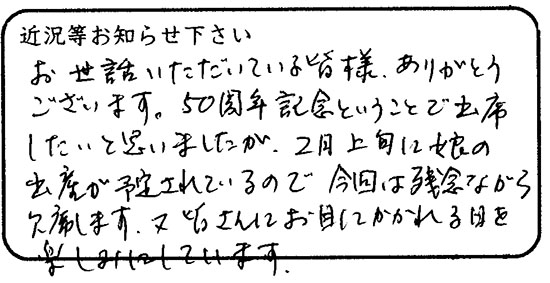 近況等お知らせ下さい
お世話いただいている皆様、ありがとう
ございます。50周年記念ということで出席
したいと思いましたが、2月上旬に娘の
出産が予定されているので今回は残念ながら
欠席します。又皆さんにお目にかかれる日を
楽しみにしています。